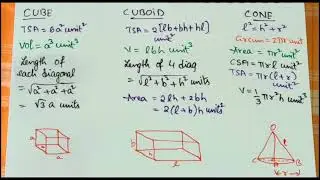 CUBE
TSA = 6a² unit²
Vol = a³ unit³
Length of
each diagonal
= √a²+a²+a²
= √3 a units
a
a
a
CUBOID
TSA = 2[lb+bh+hl]
unit²
V = lbh unit³
Length of 4 diag
= √l²+b²+h² units
Area = 2lh + 2bh
= 2(l+b)h units²
h
b
l
CONE
l² = h² + r²
Circum = 2πr unit
Area = πr² unit²
CSA = πrl unit²
TSA = πr(l+r)
unit²
V = 1/3 πr²h unit³
A
h
l
C
O
B
← r →